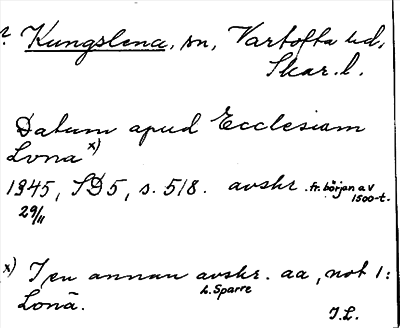 Kungslena, sn, Vartofta hd,
Skar. l.
Datum apud Ecclesiam
Lona x)
1345, SD5, s. 518. avskr. fr. början av
1500-t.
29/11
x) I en annan avskr. aa, not 1:
L. Sparre
Lonā.
I.L.